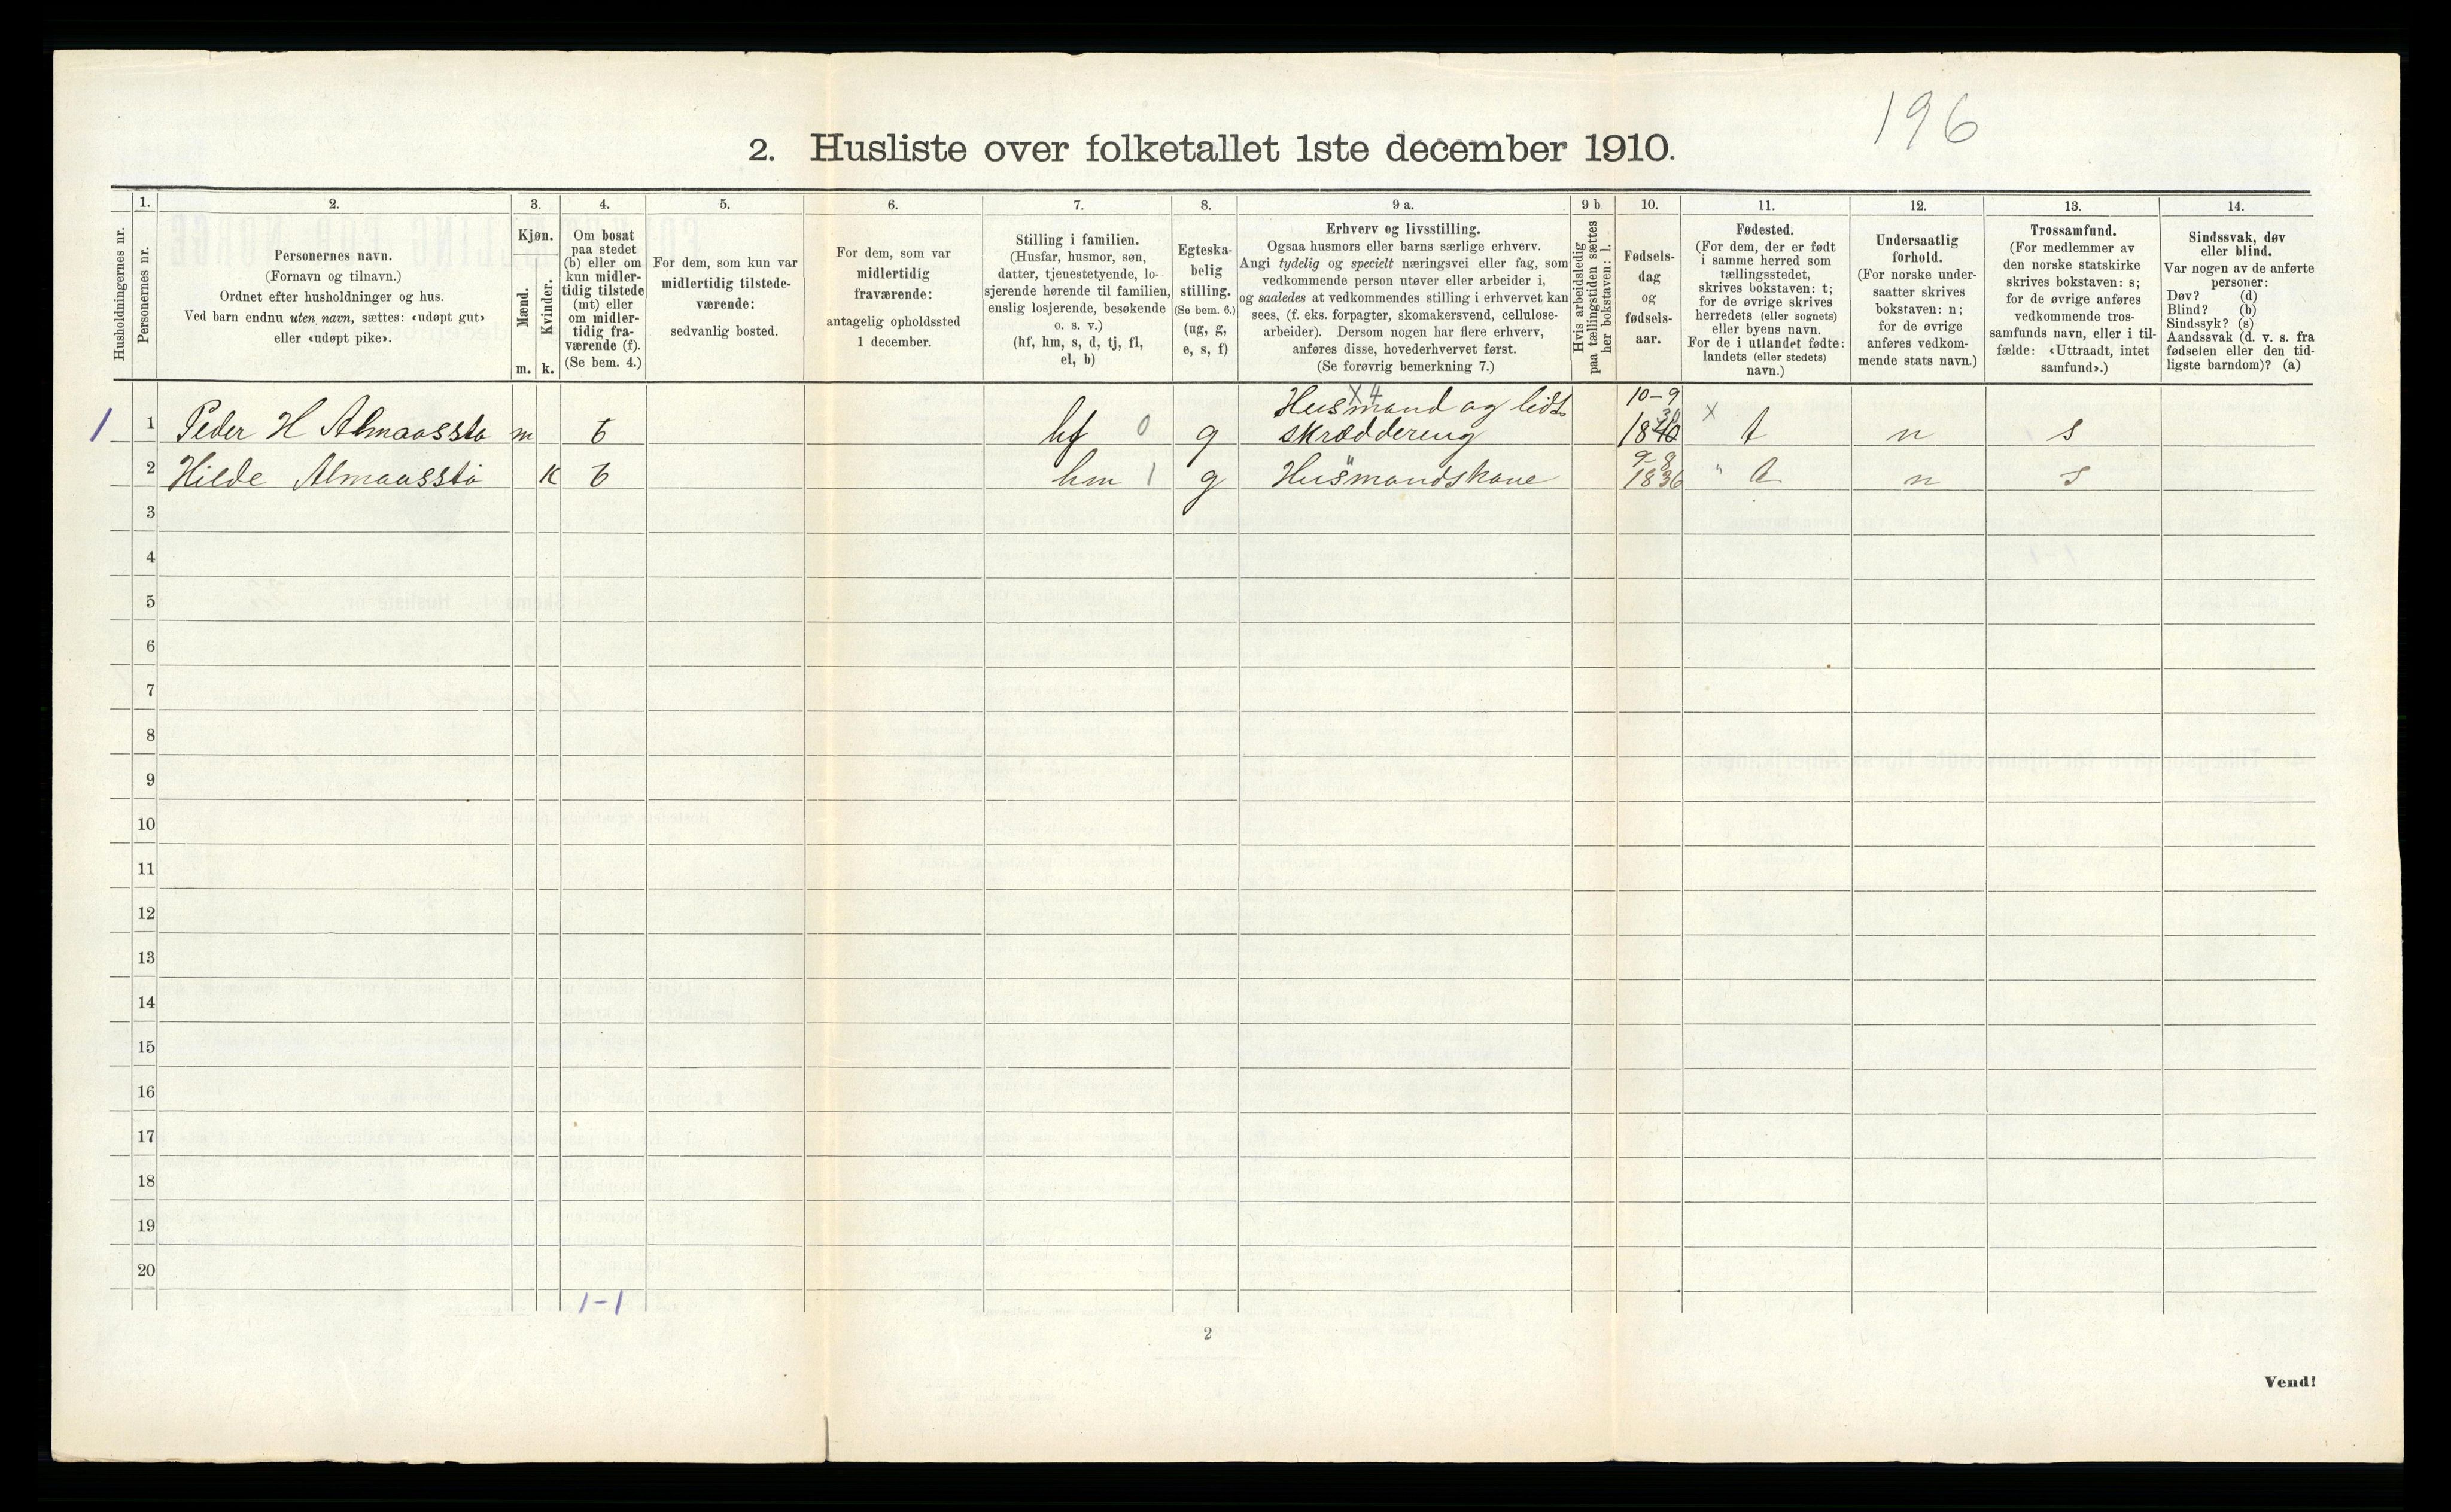 196
2. Husliste over folketallet 1ste december 1910.
Husholdningernes nr.
1.
Personernes nr.
2.
Personernes navn.
(Fornavn og tilnavn.)
Ordnet efter husholdninger og hus.
Ved barn endnu uten navn, sættes: «udøpt gut»
eller «udøpt pike».
3.
Kjøn.
Mænd.
Kvinder.
m. k.
4.
Om bosat
paa stedet
(b) eller om
kun midler-
tidig tilstede
(mt) eller
om midler-
tidig fra-
værende (f).
(Se bem. 4.)
5.
For dem, som kun var
midlertidig tilstede-
værende:
sedvanlig bosted.
6.
For dem, som var
midlertidig
fraværende:
antagelig opholdssted
1 december.
7.
Stilling i familien.
(Husfar, husmor, søn,
datter, tjenestetyende, lo-
sjerende hørende til familien,
enslig losjerende, besøkende
o. s. v.)
(hf, hm, s, d, tj, fl,
el, b)
8.
Egteska-
belig
stilling.
(Se bem. 6.)
(ug, g,
e, s, f)
9 a.
Erhverv og livsstilling.
Ogsaa husmors eller barns særlige erhverv.
Angi tydelig og specielt næringsvei eller fag, som
vedkommende person utøver eller arbeider i,
og saaledes at vedkommendes stilling i erhvervet kan
sees, (f. eks. forpagter, skomakersvend, cellulose-
arbeider). Dersom nogen har flere erhverv,
anføres disse, hovederhvervet først.
(Se forøvrig bemerkning 7.)
9 b
Hvis arbeidsledig
paa tællingstiden sættes
her bokstaven: l.
10.
Fødsels-
dag
og
fødsels-
aar.
11.
Fødested.
(For dem, der er født
i samme herred som
tællingsstedet,
skrives bokstaven: t;
for de øvrige skrives
herredets (eller sognets)
eller byens navn.
For de i utlandet fødte:
landets (eller stedets)
navn.)
12.
Undersaatlig
forhold.
(For norske under-
saatter skrives
bokstaven: n;
for de øvrige
anføres vedkom-
mende stats navn.)
13.
Trossamfund.
(For medlemmer av
den norske statskirke
skrives bokstaven: s;
for de øvrige anføres
vedkommende tros-
samfunds navn, eller i til-
fælde: «Uttraadt, intet
samfund».)
14.
Sindssvak, døv
eller blind.
Var nogen av de anførte
personer:
Døv? (d)
Blind? (b)
Sindssyk? (s)
Aandssvak (d. v. s. fra
fødselen eller den tid-
ligste barndom)? (a)
X 4
Husmand og lidt 10-9
1 1 Peder H Almaasstø m b hf 0 g skræddering 1840 30 X t n s
9-8
2 Hilde Almaasstø K b hm 1 g Husmandskone 1836 " t n s
3
4
5
6
7
8
9
10
11
12
13
14
15
16
17
18
19
20
1-1
2
Vend!